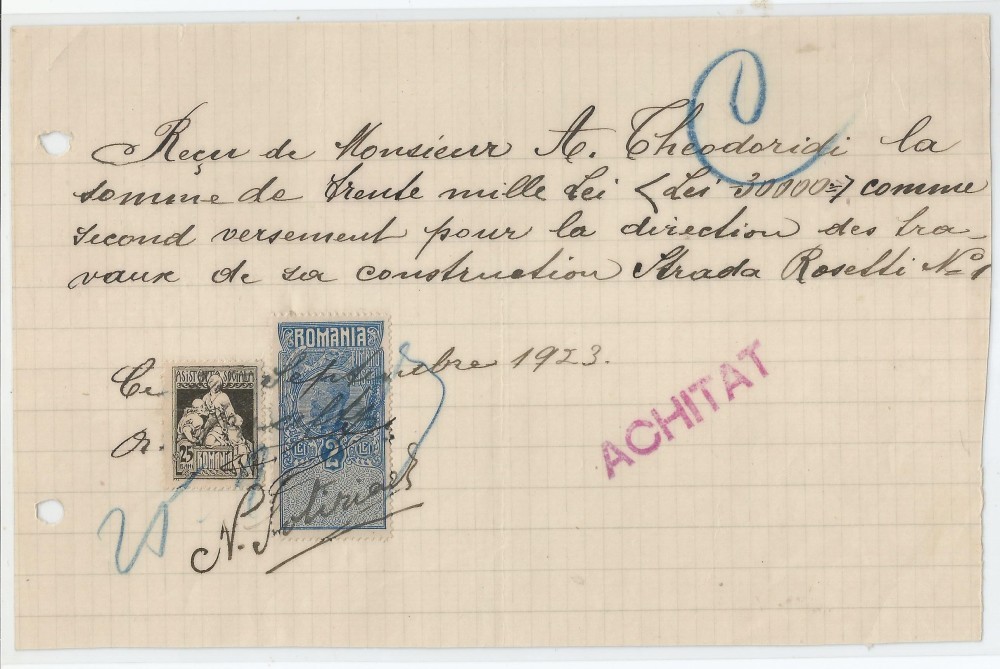 C
Reçu de Monsieur A. Theodoridi la
somme de trente mille Lei (Lei 30000=) comme
second versement pour la direction des tra-
vaux de sa construction Strada Rosetti No 1
Ce Septembre 1923.
ROMANIA
LEI 2 LEI
ASISTENȚA SOCIALĂ
25 BANI
ROMANIA
N. Fotiriadi
ACHITAT